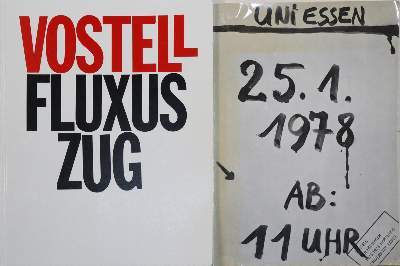 VOSTELL
FLUXUS
ZUG
UNI ESSEN
25.1.
1978
AB:
11 UHR